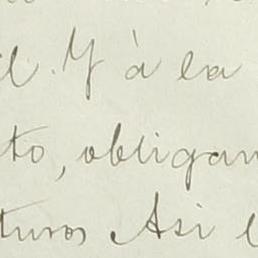 il. Y à la
to, obligan
turos Asi l